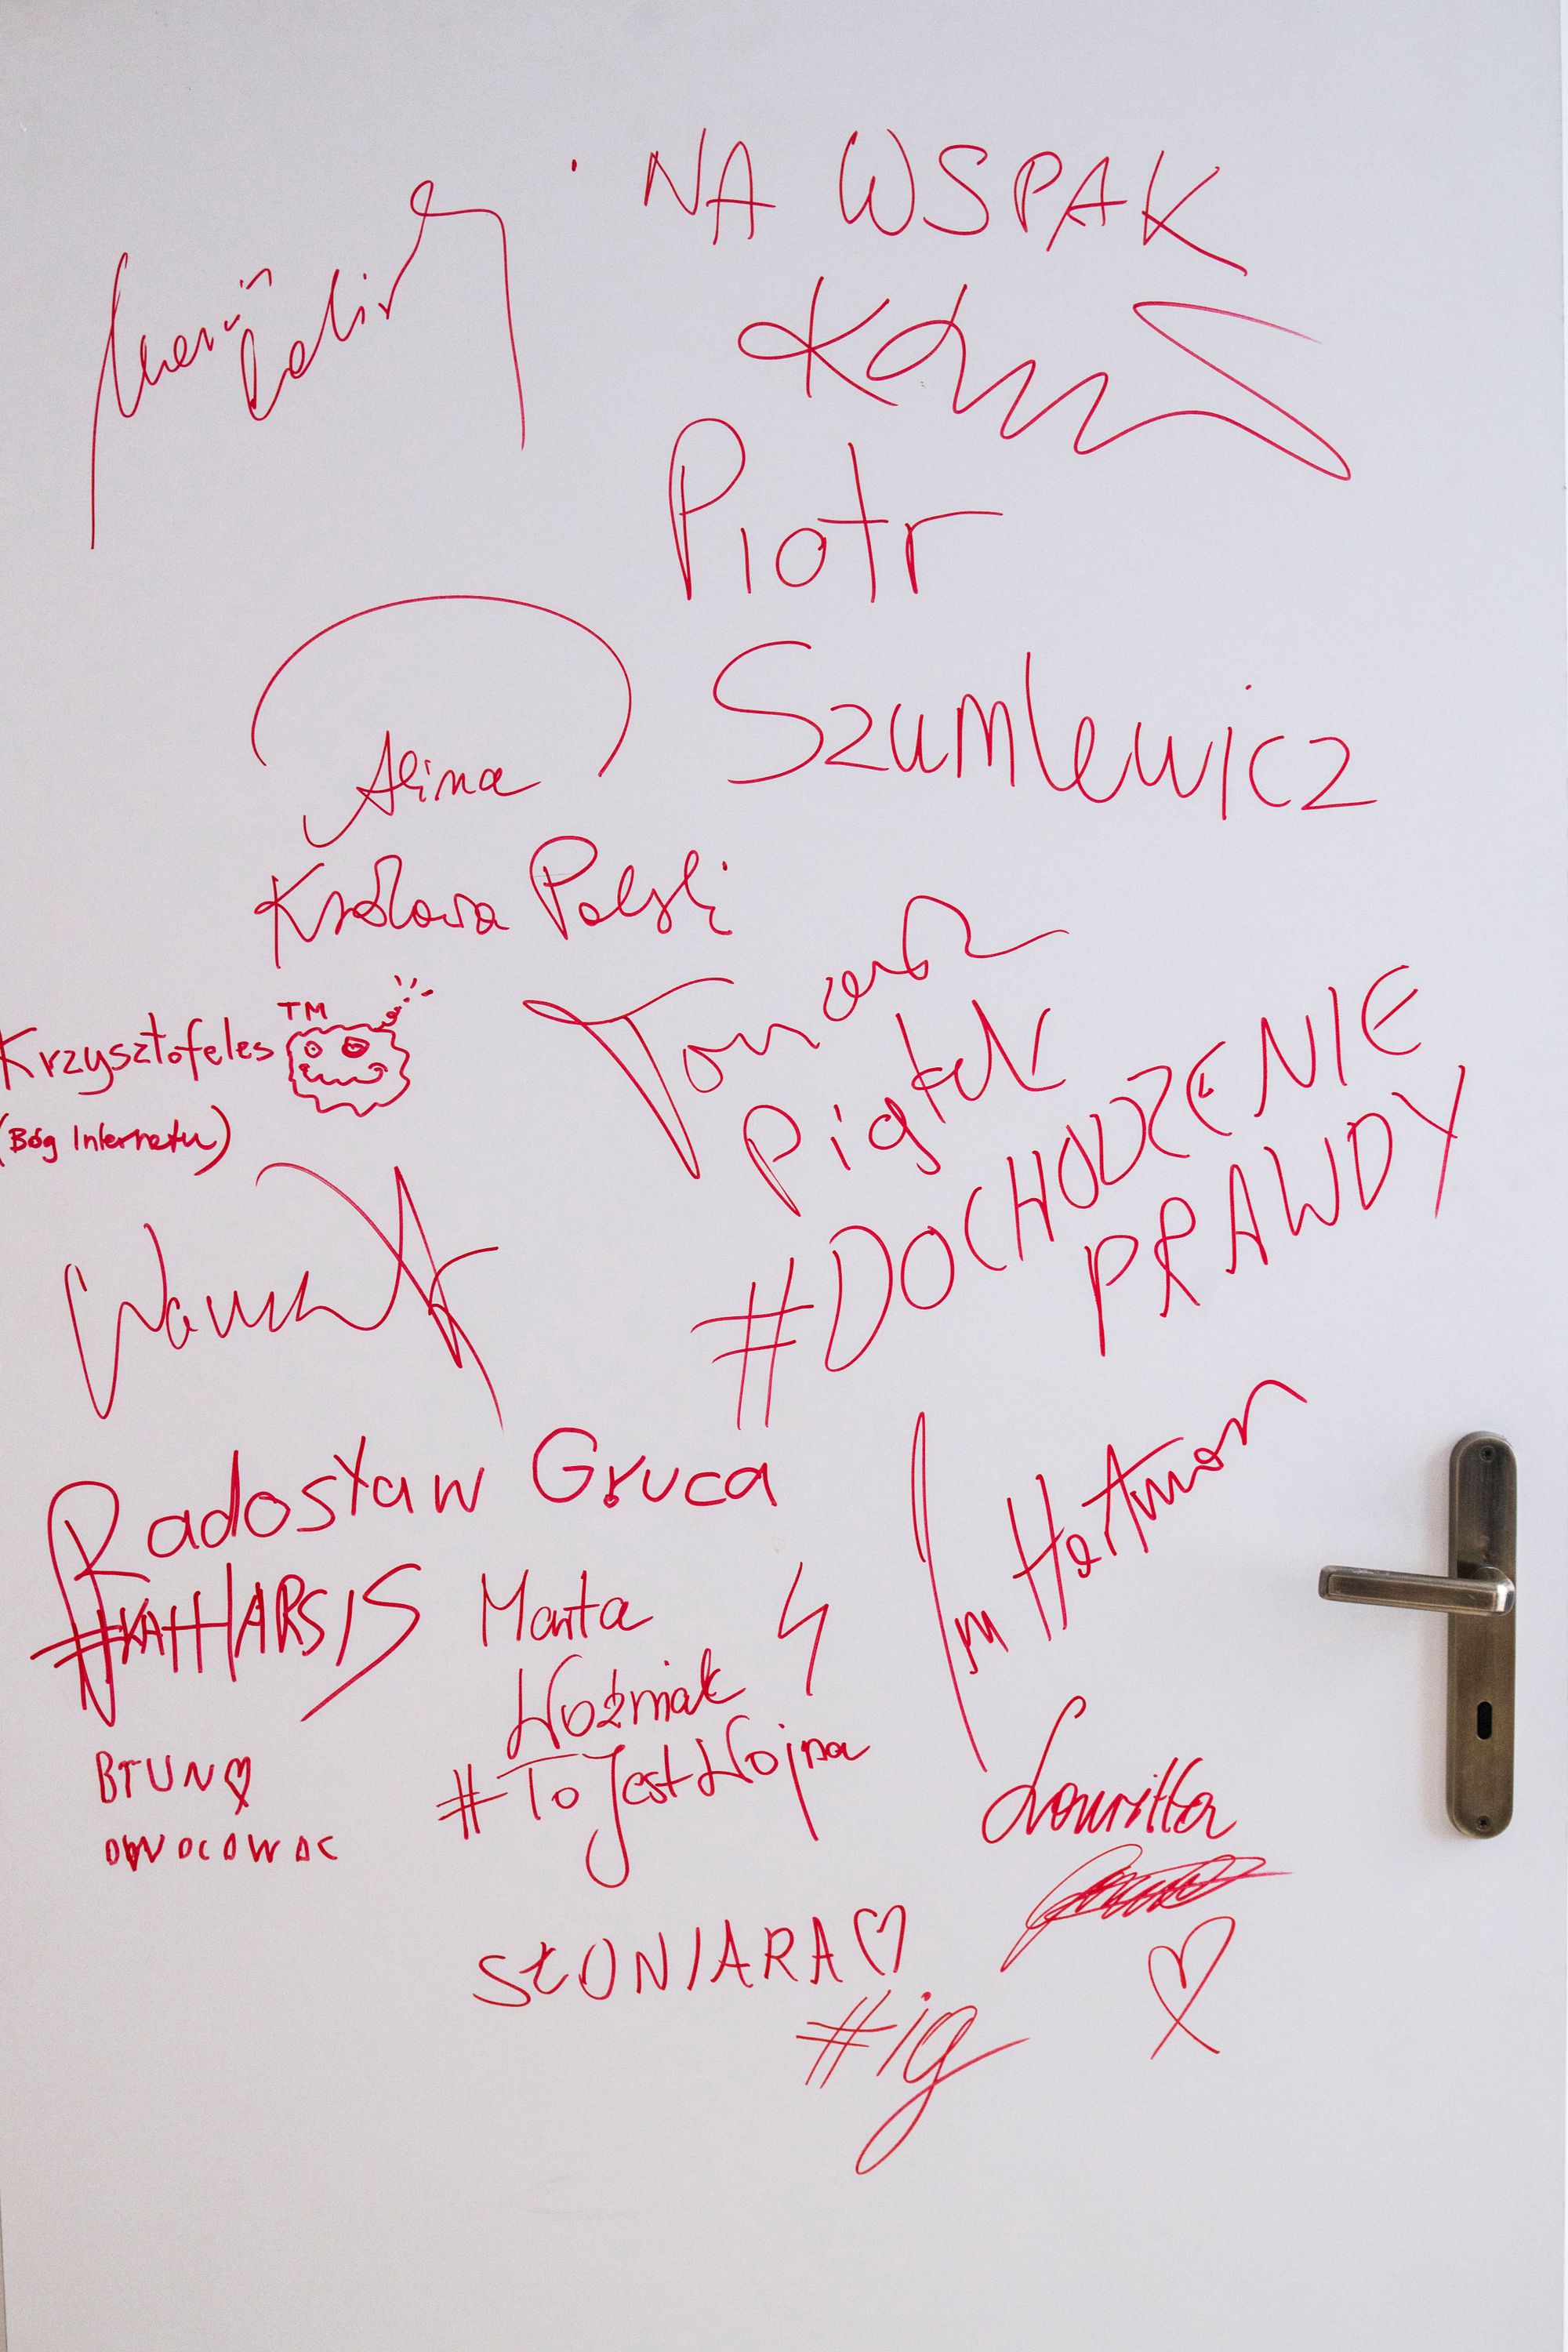 NA WSPAK
Piotr
Szumlewicz
Alina
Królowa Polski
Krzysztofeles TM
(Bóg Internetu)
Tomasz
Piątek
#DOCHODZENIE
PRAWDY
Radosław Gruca
#KATHARSIS
Jan Hartman
Marta
Woźniak
#ToJestWojna
Louritta
SŁONIARA
#ig